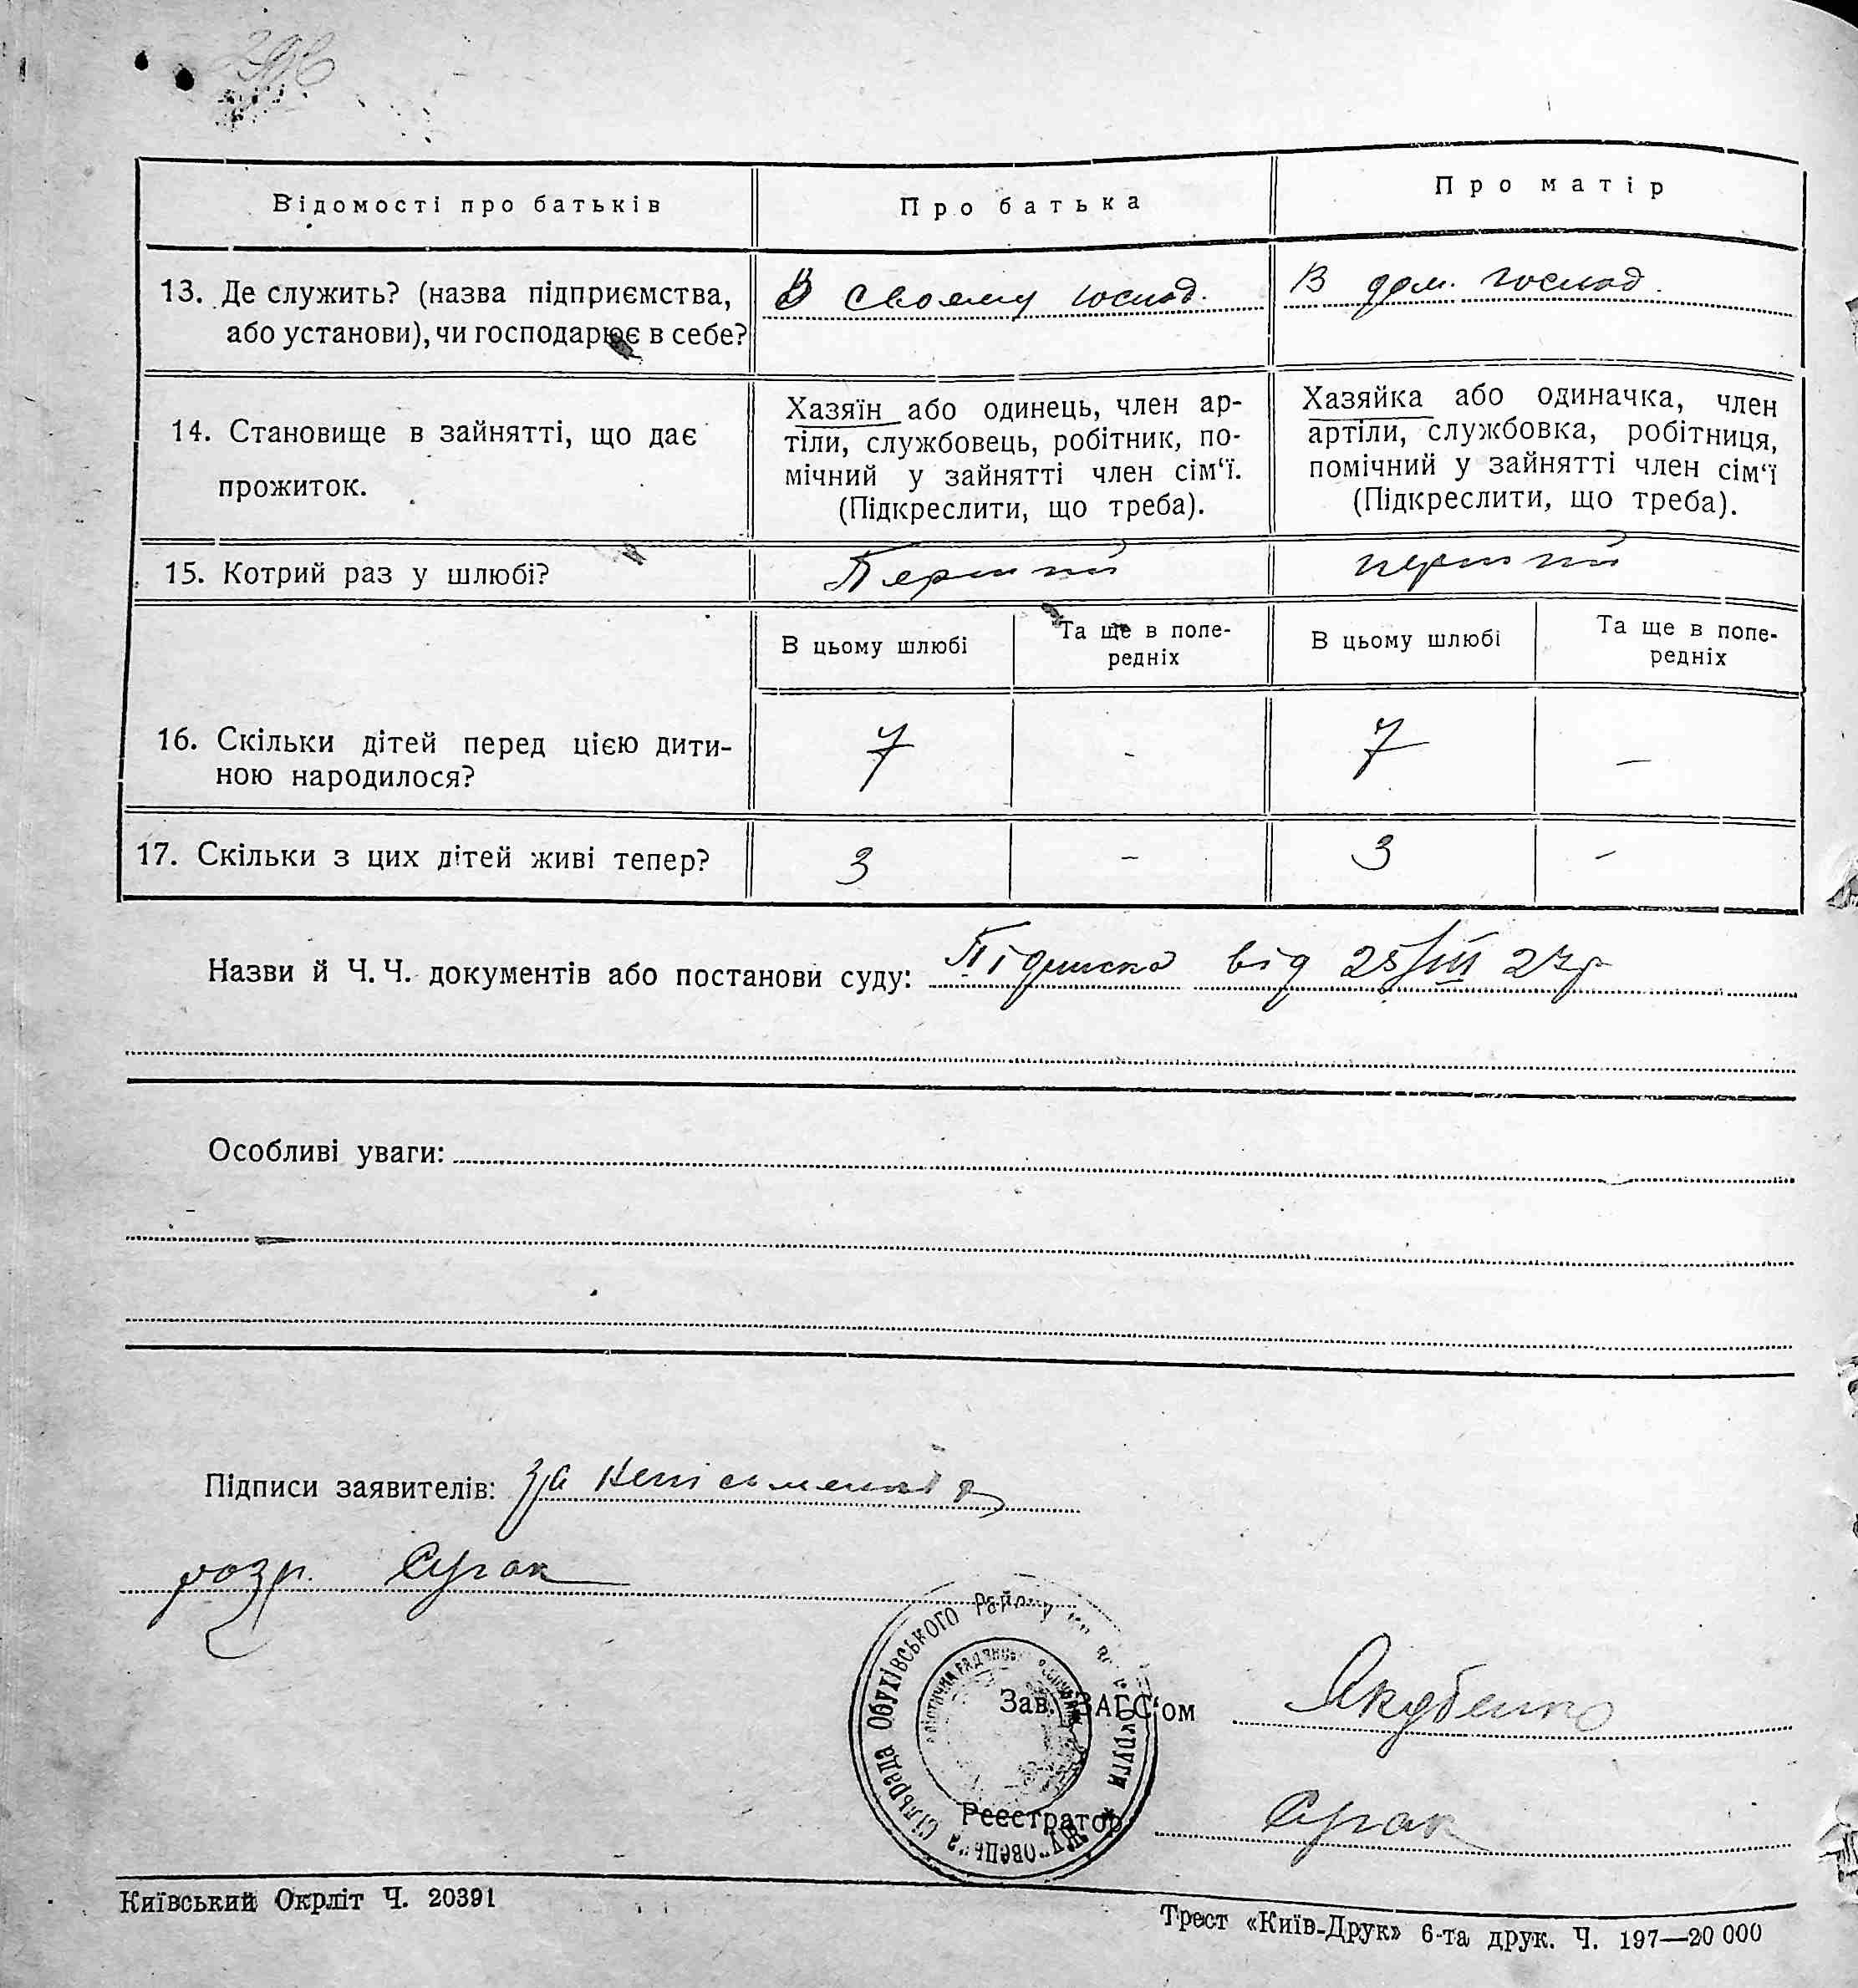 396
Відомості про батьків
Про батька
Про матір
13. Де служить? (назва підприємства,
або установи), чи господарює в себе?
В своєму господ.
В дом. господ.
14. Становище в зайнятті, що дає
прожиток.
Хазяїн або одинець, член ар-
тіли, службовець, робітник, по-
мічний у зайнятті член сім‘ї.
(Підкреслити, що треба).
Хазяйка або одиначка, член
артіли, службовка, робітниця,
помічний у зайнятті член сім‘ї
(Підкреслити, що треба).
15. Котрий раз у шлюбі?
Перший
перший
В цьому шлюбі
Та ще в попе-
редніх
В цьому шлюбі
Та ще в попе-
редніх
16. Скільки дітей перед цією дити-
ною народилося?
7
-
7
—
17. Скільки з цих дітей живі тепер?
3
–
3
–
Назви й Ч. Ч. документів або постанови суду: Підписка від 25/III 27р
Особливі уваги:
Підписи заявителів: за неписьменн
розр.
Сільрада Обухівського Району округи
Зав. ЗАГС‘ом Якубенко
Реєстратор
Київський Окрліт Ч. 20391
Трест «Київ-Друк» 6-та друк. Ч. 197—20 000